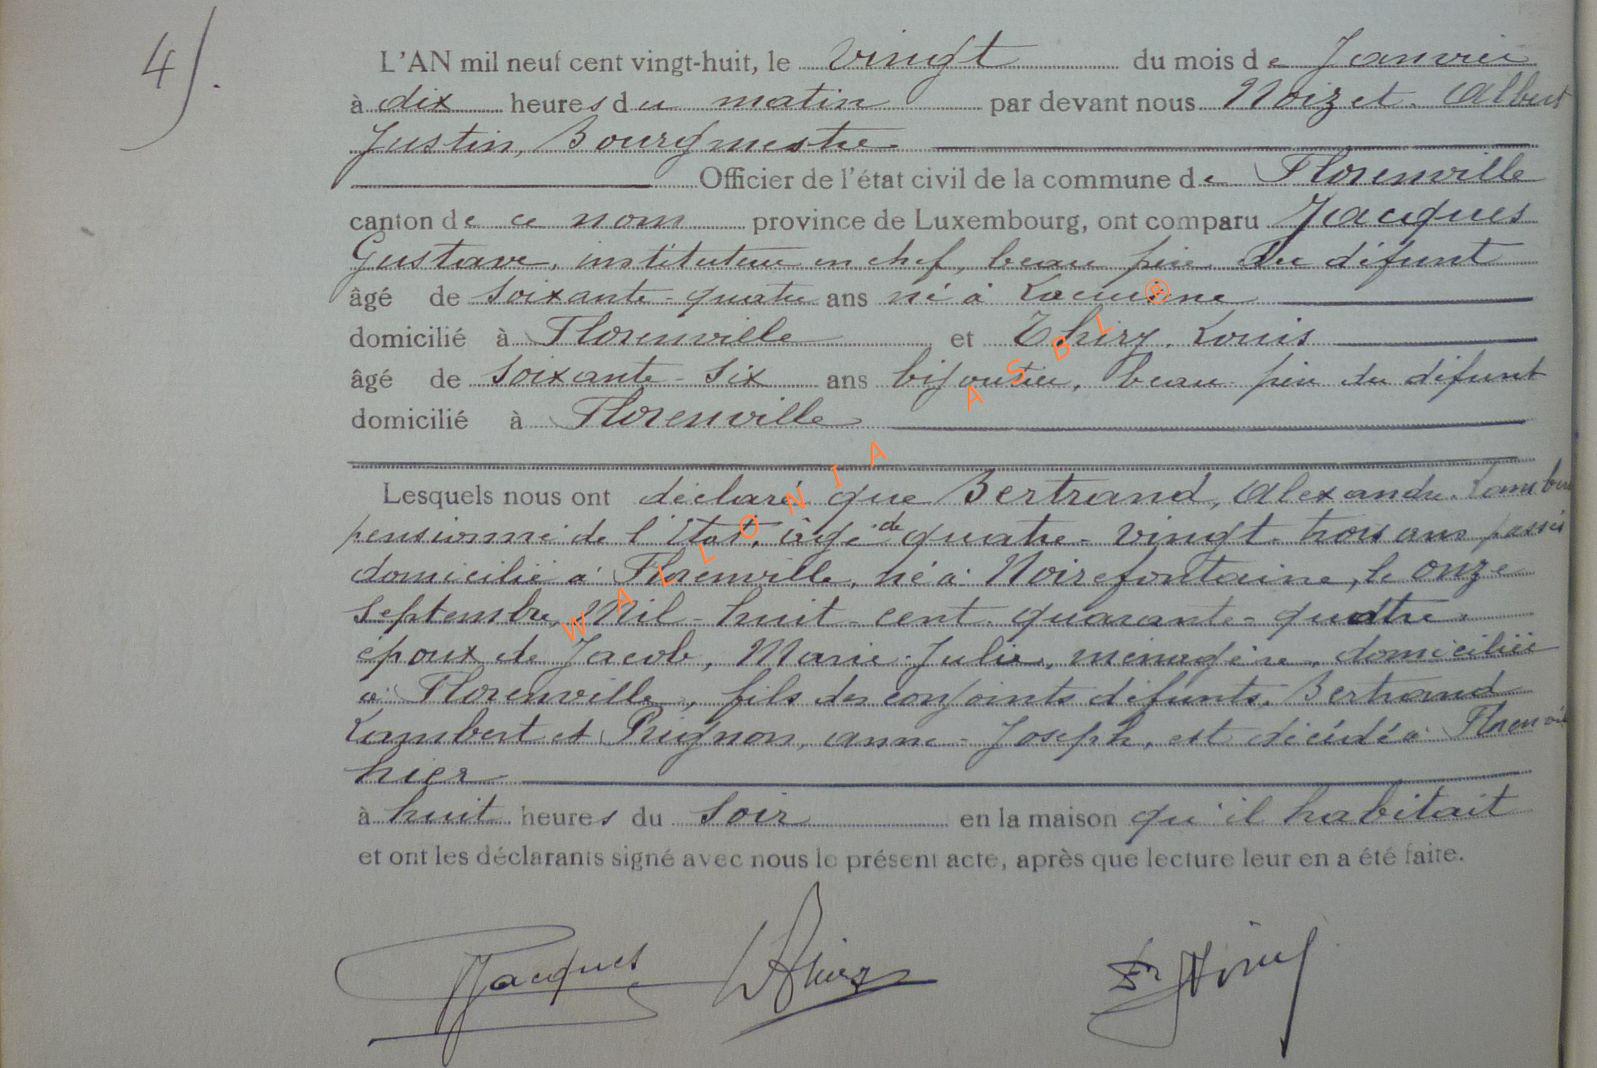 4).
L'AN mil neuf cent vingt-huit, le vingt du mois de Janvier
à dix heures du matin par devant nous Noizet. Albert
Justin, Bourgmestre
Officier de l'état civil de la commune de Florenville
canton de ce nom province de Luxembourg, ont comparu Jacques
Gustave, instituteur en chef, beau père du défunt
âgé de soixante-quatre ans né à Lacuisine
domicilié à Florenville et Thiry. Louis
âgé de soixante-six ans bijoutier, beau père du défunt
domicilié à Florenville
Lesquels nous ont déclaré que Bertrand, Alexandre. Lambert
pensionné de l'Etat, âgé de quatre-vingt-trois ans passés
domicilié à Florenville, né à Noirefontaine, le onze
septembre, Mil-huit-cent-quarante-quatre.
époux de Jacob, Marie-Julie, ménagère, domiciliée
à Florenville, fils des conjoints défunts, Bertrand
Lambert et Pirignon, anne-Joseph, est décédé à Florenville
hier
à huit heures du soir en la maison qu'il habitait
et ont les déclarants signé avec nous le présent acte, après que lecture leur en a été faite.
Jacques LThiry
WALLONIA ASBL ®